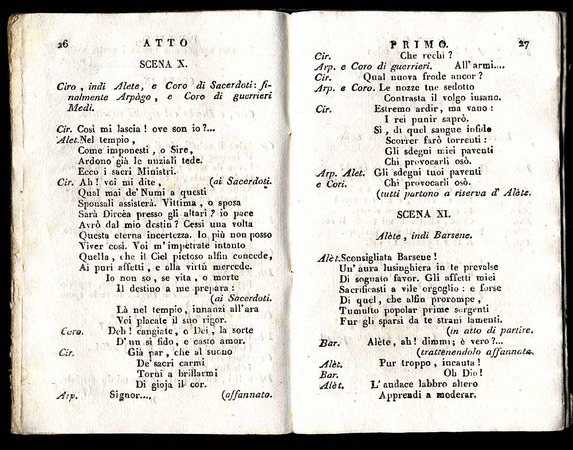 26 ATTO
SCENA X.
Ciro, indi Alete, e Coro di Sacerdoti: fi-
nalmente Arpàgo, e Coro di guerrieri
Medi.
Cir. Così mi lascia! ove son io?...
Alet. Nel tempio,
Come imponesti, o Sire,
Ardono già le nuziali tede.
Ecco i sacri Ministri.
Cir. Ah! voi mi dite, (ai Sacerdoti.
Qual mai de' Numi a questi
Sponsali assisterà. Vittima, o sposa
Sarà Dircèa presso gli altari? io pace
Avrò dal mio destin? Cessi una volta
Questa eterna incertezza. Io più non posso
Viver così. Voi m' impetrate intanto
Quella, che il Ciel pietoso alfin concede,
Ai puri affetti, e alla virtù mercede.
Io non so, se vita, o morte
Il destino a me prepara:
(ai Sacerdoti.
Là nel tempio, innanzi all'ara
Voi placate il suo rigor.
Coro. Deh! cangiate, o Dei, la sorte
D' un sì fido, e casto amor.
Cir. Già par, che al suono
De' sacri carmi
Torni a brillarmi
Di gioja il cor.
Arp. Signor.... (affannato.
PRIMO. 27
Cir. Che rechi?
Arp. e Coro di guerrieri. All' armi....
Cir. Qual nuova frode ancor?
Arp. e Coro. Le nozze tue sedotto
Contrasta il volgo insano.
Cir. Estremo ardir, ma vano:
I rei punir saprò.
Sì, di quel sangue infido
Scorrer farò torrenti:
Gli sdegni miei paventi
Chi provocarli osò.
Arp. Alet. Gli sdegni tuoi paventi
e Cori. Chi provocarli osò.
(tutti partono a riserva d' Alète.
SCENA XI.
Alète, indi Barsene.
Alèt. Sconsigliata Barsene!
Un' aura lusinghiera in te prevalse
Di sognato favor. Gli affetti miei
Sacrificasti a vile orgoglio: e forse
Di quel, che alfin prorompe,
Tumulto popolar prime sorgenti
Fur gli sparsi da te strani lamenti.
(in atto di partire.
Bar. Alète, ah! dimmi; è vero?...
(trattenendolo affannata.
Alèt. Pur troppo, incauta!
Bar. Oh Dio!
Alèt. L' audace labbro altero
Apprendi a moderar.